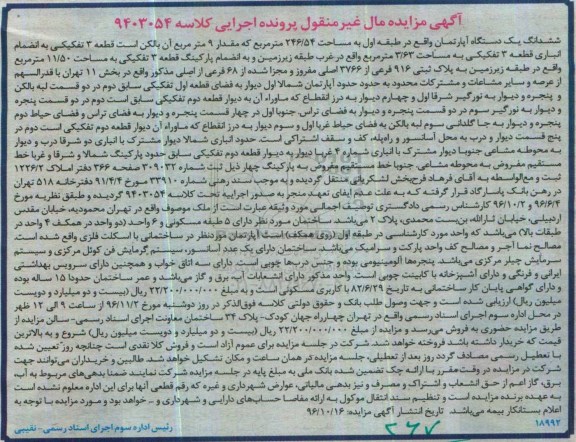 آگهی مزایده مال غیرمنقول پرونده اجرایی کلاسه ۹۴۰۳۰۵۴
ششدانگ یک دستگاه آپارتمان واقع در طبقه اول به مساحت ۲۴۶/۵۴ مترمربع که مقدار ۹ متر مربع آن بالکن است قطعه ۳ تفکیکی به انضمام
انباری قطعه ۳ تفکیکی به مساحت ۳/۶۳ مترمربع واقع در غرب طبقه زیرزمین و به انضمام پارکینگ قطعه ۳ تفکیکی به مساحت ۱۱/۵۰ مترمربع
واقع در طبقه زیرزمین به پلاک ثبتی ۹۱۶ فرعی از ۳۷۶۶ اصلی مفروز و مجزا شده از ۶۸ فرعی از اصلی مذکور واقع در بخش ۱۱ تهران با قدرالسهم
از عرصه و سایر مشاعات و مشترکات محدود به حدود حدود آپارتمان شمالا اول دیوار به فضای قطعه اول تفکیکی سابق دوم در دو قسمت لبه بالکن
و پنجره و دیوار به نورگیر شرقا اول و چهارم دیوار به درز انقطاع که ماوراء آن به دیوار قطعه دوم تفکیکی سابق است دوم در دو قسمت پنجره
و دیوار به نورگیر سوم در دو قسمت پنجره و دیوار به فضای تراس جنوبا اول در چهار قسمت پنجره و دیوار به فضای تراس و فضای حیاط دوم
پنجره و دیوار به جا گلدانی سوم لبه بالکن به فضای حیاط غربا اول و سوم دیوار به درز انقطاع که ماوراء آن دیوار قطعه دوم تفکیکی است دوم در
پنج قسمت دیوار و درب به محل آسانسور و راه‌پله، کف و سقف اشتراکی است، حدود انباری شمالا دیوار مشترک با انباری دو شرقا درب و دیوار
به محوطه مشاعی جنوبا دیوار مشترک با انباری شماره ۴ غربا دیوار به دیوار قطعه دوم تفکیکی سابق حدود پارکینگ شمالا و شرقا و غربا خط
مستقیم مفروض به محوطه مشاعی جنوبا خط مستقیم مفروض به پارکینگ چهار ذیل ثبت شماره ۳۰۹۰۳۲ صفحه ۳۶۶ دفتر املاک ۱۲۲۶/۲
ثبت و مع‌الواسطه به آقای فرهاد فرح‌بخش لشکریانی منتقل گردیده و به موجب سند رهنی شماره ۳۳۹۱۰ مورخ ۹۱/۴/۴ دفترخانه ۵۱۸ تهران
در رهن بانک پاسارگاد قرار گرفته که به علت عدم ایفای تعهد منجر به صدور اجراییه تحت کلاسه ۹۴۰۳۰۵۴ گردیده و طبق نظریه مورخ
۹۶/۶/۴ و ۹۶/۱۰/۲ کارشناس رسمی دادگستری توصیف اجمالی مورد وثیقه عبارت است از ملک موصوف واقع در تهران محمودیه، خیابان مقدس
اردبیلی، خیابان ثاراله، بن‌بست محمدی، پلاک ۲ می‌باشد. ساختمان مورد نظر دارای ۵ طبقه مسکونی و ۶ واحد (دو واحد در همکف ۴ واحد در
طبقات بالا) می‌باشد که واحد مورد کارشناسی در طبقه اول (روی همکف) است آپارتمان موردنظر در ساختمانی با اسکلت فلزی واقع شده است.
مصالح نما آجر و مصالح کف واحد پارکت و سرامیک می‌باشد. ساختمان دارای یک عدد آسانسور، سیستم گرمایش فن کوئل مرکزی و سیستم
سرمایش چیلر مرکزی می‌باشد. پنجره‌ها آلومینیومی بوده و جنس درب‌ها چوبی است. دارای سه اتاق خواب و همچنین دارای سرویس بهداشتی
ایرانی و فرنگی و دارای آشپزخانه با کابینت چوبی است. واحد مذکور دارای انشعابات آب برق و گاز می‌باشد و عمر ساختمان حدودا ۱۵ ساله بوده
و دارای گواهی پایان کار ساختمانی به تاریخ ۸۲/۶/۲۹ با کاربری مسکونی است به مبلغ ۲۲/۲۰۰/۰۰۰/۰۰۰ ریال (بیست و دو میلیارد و دویست
میلیون ریال) ارزیابی شده است و جهت وصول طلب بانک و حقوق دولتی کلاسه فوق‌الذکر در روز دوشنبه مورخ ۹۶/۱۱/۲ از ساعت ۹ الی ۱۲ ظهر
در محل اداره سوم اجرای اسناد رسمی واقع در تهران چهارراه جهان کودک- پلاک ۳۴ ساختمان معاونت اجرای اسناد رسمی- سالن مزایده از
طریق مزایده حضوری به فروش می‌رسد و مزایده از مبلغ ۲۲/۲۰۰/۰۰۰/۰۰۰ ریال (بیست و دو میلیارد و دویست میلیون ریال) شروع و به بالاترین
قیمت که خریدار داشته باشد فروخته خواهد شد. شرکت در جلسه مزایده برای عموم آزاد است و فروش کلا نقدی است چنانچه روز تعیین شده
با تعطیل رسمی مصادف گردد روز بعد از تعطیلی، جلسه مزایده در همان ساعت و مکان تشکیل خواهد شد. طالبین و خریداران می‌توانند جهت
شرکت در مزایده در وقت مقرر با ارائه چک تضمین شده بانک ملی به مبلغ پایه در جلسه مزایده شرکت نمایند. ضمنا بدهی‌های مربوط به آب،
برق، گاز اعم از حق انشعاب و اشتراک و مصرف و نیز بدهی مالیاتی، عوارض شهرداری و غیره که رقم قطعی آنها برای این اداره معلوم نشده است
به عهده برنده مزایده است و تنظیم سند انتقال موکول به ارائه مفاصا حساب‌های دارایی و شهرداری و ... خواهد بود و مورد مزایده با توجه به
اعلام بستانکار بیمه می‌باشد. تاریخ انتشار آگهی مزایده: ۹۶/۱۰/۱۶
۱۸۹۹۲
رئیس اداره سوم اجرای اسناد رسمی- نقیبی